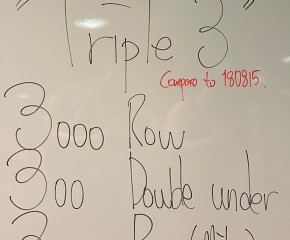 " Triple 3 "
Compare to 180815.
3000 Row
300 Double under
3